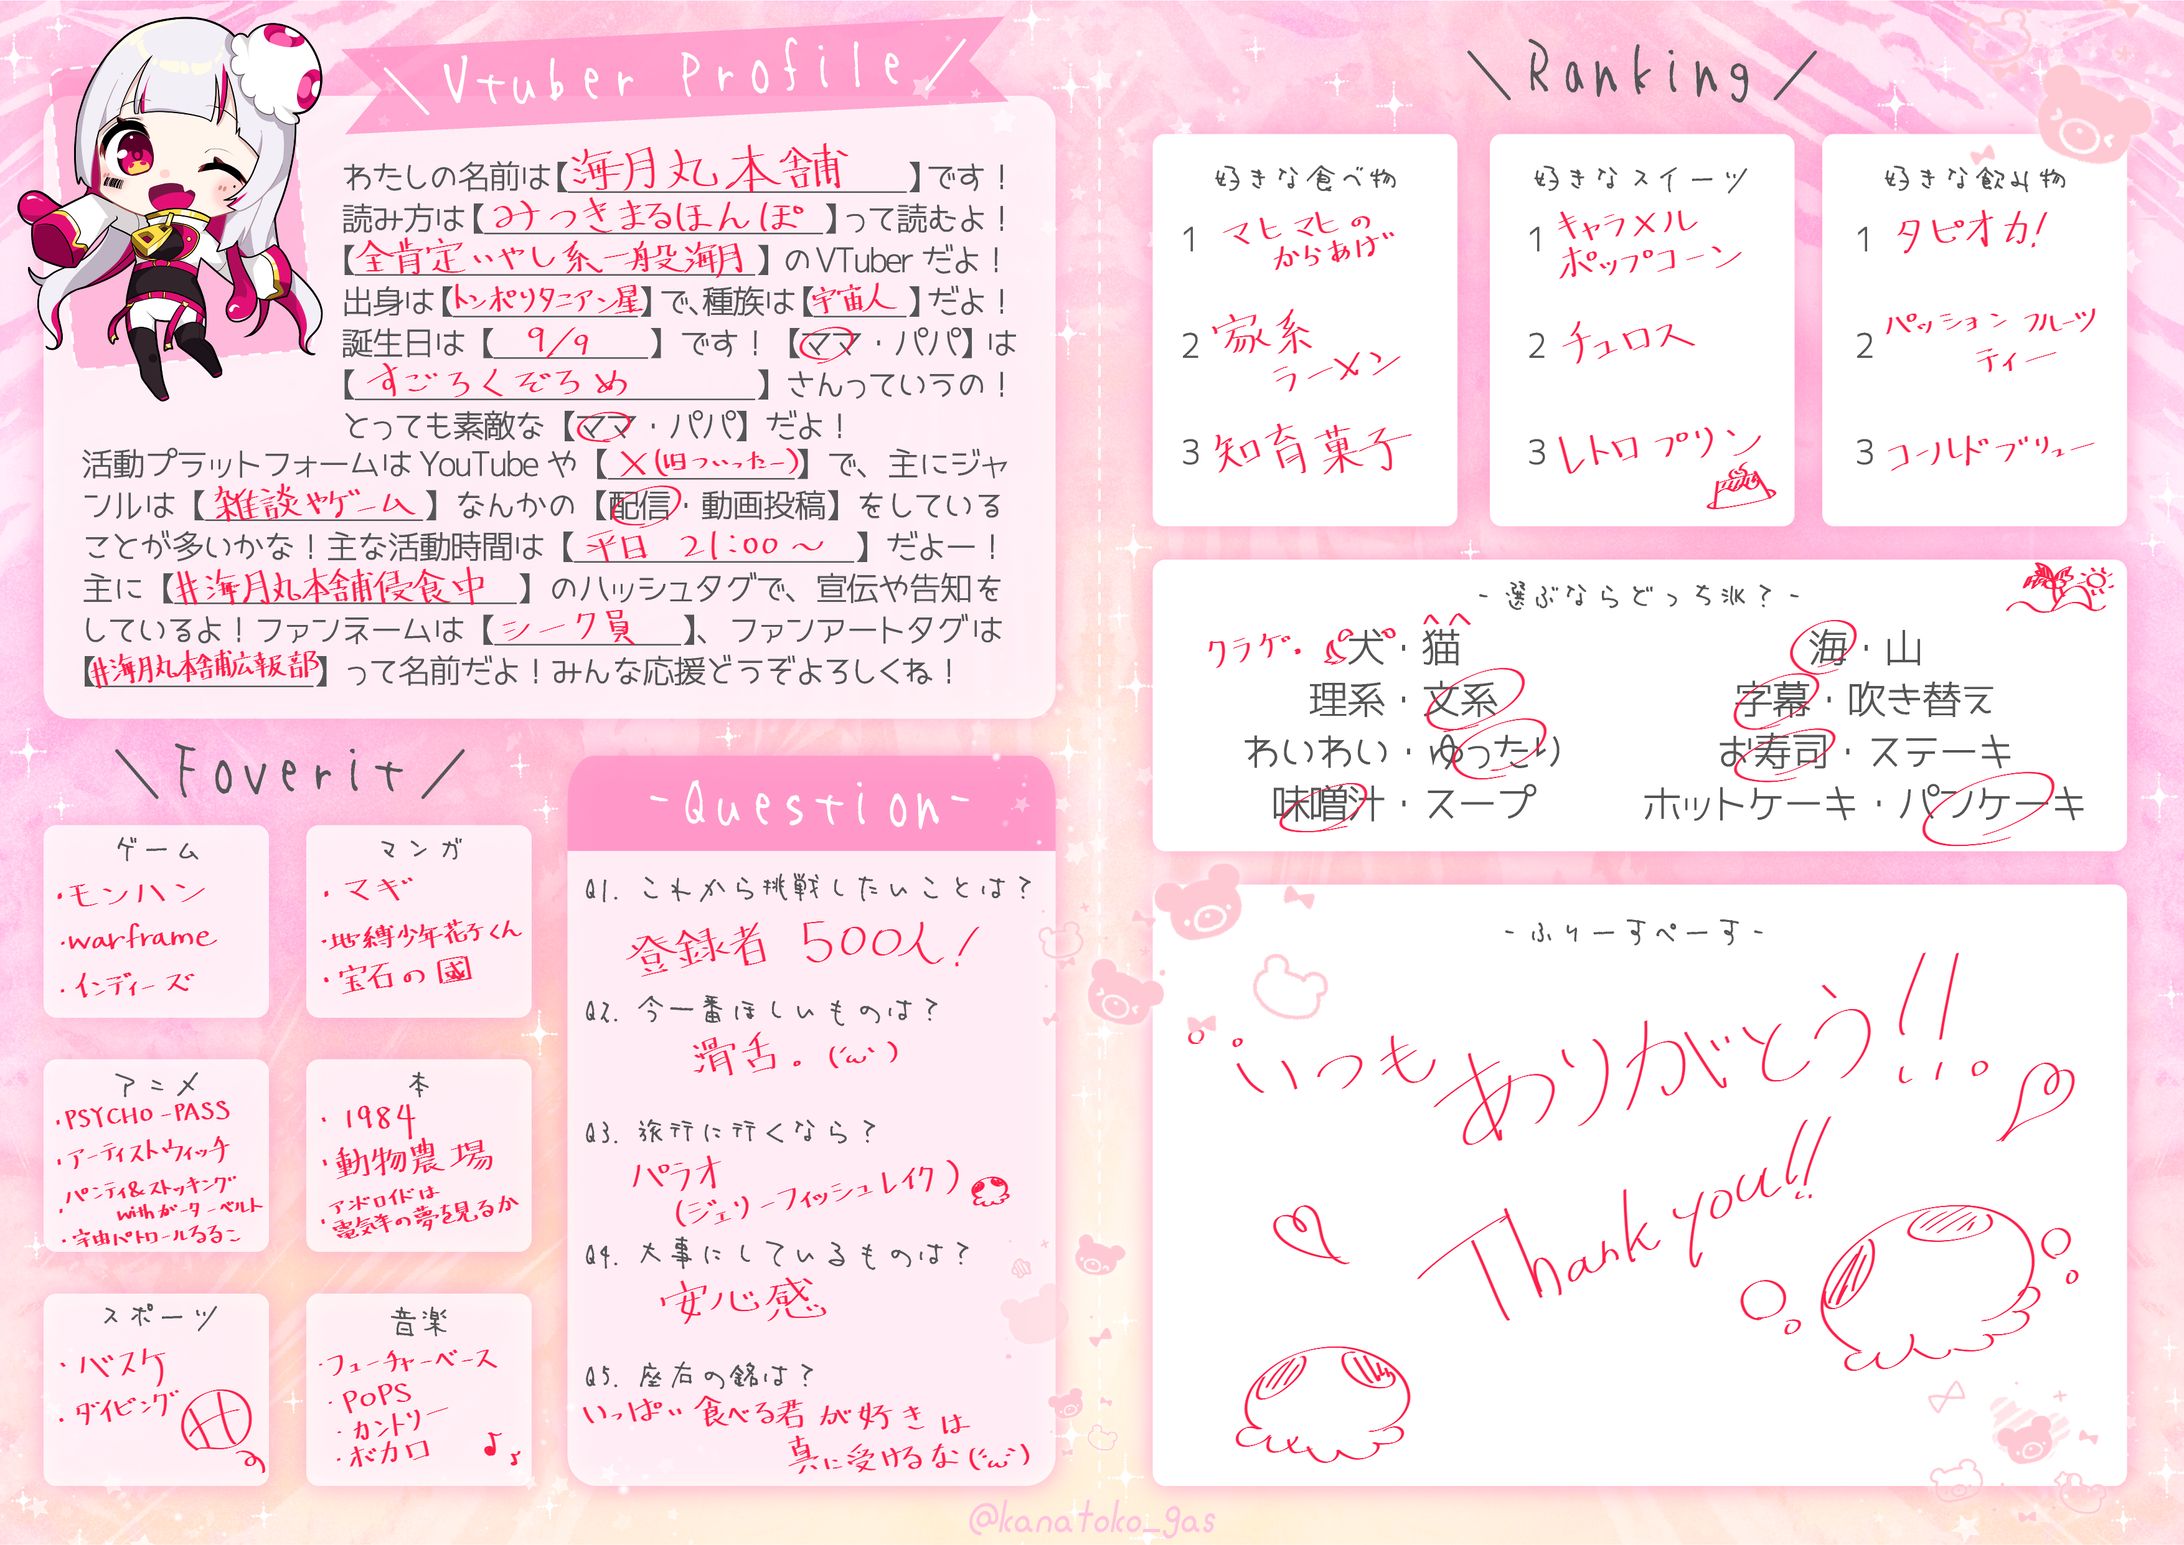 \ Vtuber Profile /
わたしの名前は【海月丸本舗】です！
読み方は【みつきまるほんぽ】って読むよ！
【全肯定いやし系一般海月】のVTuberだよ！
出身は【トンポリタニアン星】で、種族は【宇宙人】だよ！
誕生日は【9/9】です！【ママ・パパ】は
【すごろくぞろめ】さんっていうの！
とっても素敵な【ママ・パパ】だよ！
活動プラットフォームはYouTubeや【X(旧ついったー)】で、主にジャ
ンルは【雑談やゲーム】なんかの【配信・動画投稿】をしている
ことが多いかな！主な活動時間は【平日 21:00～】だよー！
主に【#海月丸本舗侵食中】のハッシュタグで、宣伝や告知を
しているよ！ファンネームは【シーク員】、ファンアートタグは
【#海月丸本舗広報部】って名前だよ！みんな応援どうぞよろしくね！
\ Foverit /
ゲーム
・モンハン
・warframe
・インディーズ
マンガ
・マギ
・地縛少年花子くん
・宝石の國
アニメ
・PSYCHO-PASS
・アーティストウィッチ
・パンティ&ストッキング
withガーターベルト
・宇宙パトロールるるこ
本
・1984
・動物農場
・アンドロイドは
電気羊の夢を見るか
スポーツ
・バスケ
・ダイビング
音楽
・フューチャーベース
・POPS
・カントリー
・ボカロ
-Question-
Q1. これから挑戦したいことは？
登録者 500人！
Q2. 今一番ほしいものは？
滑舌。(´ω`)
Q3. 旅行に行くなら？
パラオ
(ジェリーフィッシュレイク)
Q4. 大事にしているものは？
安心感
Q5. 座右の銘は？
いっぱい食べる君が好きは
真に受けるな(´ω`)
\ Ranking /
好きな食べ物
1 マヒマヒの
からあげ
2 家系
ラーメン
3 知育菓子
好きなスイーツ
1 キャラメル
ポップコーン
2 チュロス
3 レトロプリン
好きな飲み物
1 タピオカ！
2 パッションフルーツ
ティー
3 コールドブリュー
-選ぶならどっち派？-
クラゲ・犬・猫
理系・文系
わいわい・ゆったり
味噌汁・スープ
海・山
字幕・吹き替え
お寿司・ステーキ
ホットケーキ・パンケーキ
-ふりーすぺーす-
いつもありがとう!!
Thank you!!
@kanatoko_gas